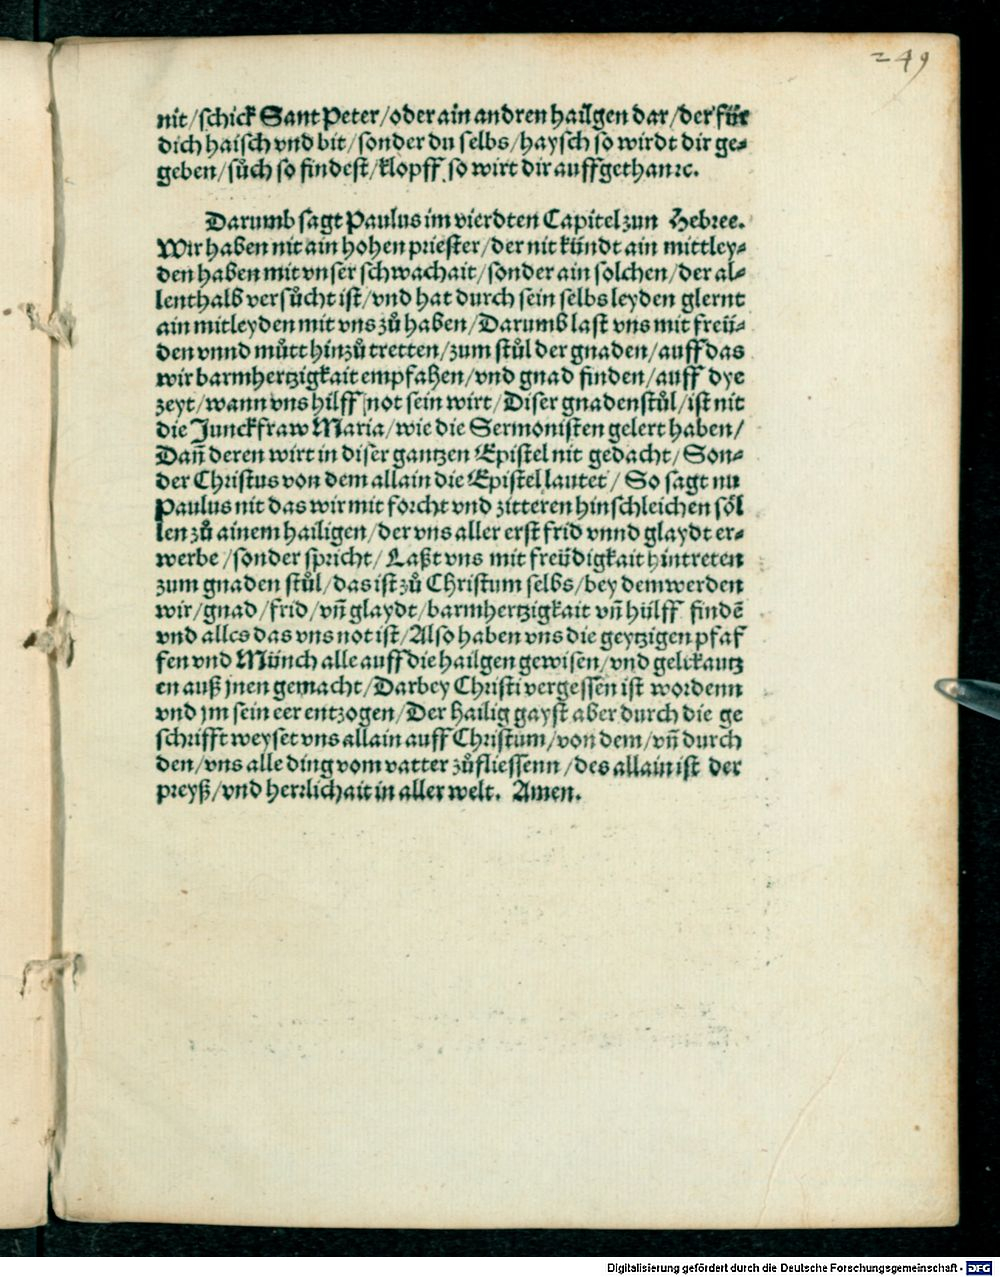 249
nit/schick Sant Peter/oder ain andren hailgen dar/der für
dich haisch vnd bit/sonder du selbs/haysch so wirdt dir ge⸗
geben/sůch so findest/klopff so wirt dir auffgethan ⁊c.
Darumb sagt Paulus im vierdten Capitel zun Hebree.
Wir haben nit ain hohen priester/der nit kündt ain mittley⸗
den haben mit vnser schwachait/sonder ain solchen/der al⸗
lenthalb versůcht ist/vnd hat durch sein selbs leyden glernt
ain mitleyden mit vns zů haben/Darumb last vns mit freü⸗
den vnnd můtt hinzů tretten/zum stůl der gnaden/auff das
wir barmhertzigkait empfahen/vnd gnad finden/auff dye
zeyt/wann vns hilff not sein wirt/Diser gnadenstůl/ist nit
die Junckfraw Maria/wie die Sermonisten gelert haben/
Dañ deren wirt in diser gantzen Epistel nit gedacht/Son⸗
der Christus von dem allain die Epistel lautet/So sagt nu
Paulus nit das wir mit forcht vnd zitteren hinschleichen söl
len zů ainem hailigen/der vns aller erst frid vnnd glaydt er⸗
werbe/sonder spricht/Laßt vns mit freüdigkait hintreten
zum gnaden stůl/das ist zů Christum selbs/bey dem werden
wir/gnad/frid/vñ glaydt/barmhertzigkait vñ hülff findē
vnd alles das vns not ist/Also haben vns die geytzigen pfaf
fen vnd Münch alle auff die hailgen gewisen/vnd gelt kautz
en auß jnen gemacht/Darbey Christi vergessen ist wordenn
vnd jm sein eer entzogen/Der hailig gayst aber durch die ge
schrifft weyset vns allain auff Christum/von dem/vñ durch
den/vns alle ding vom vatter zůfliessenn/des allain ist der
preyß/vnd herrlichait in aller welt. Amen.
Digitalisierung gefördert durch die Deutsche Forschungsgemeinschaft - DFG